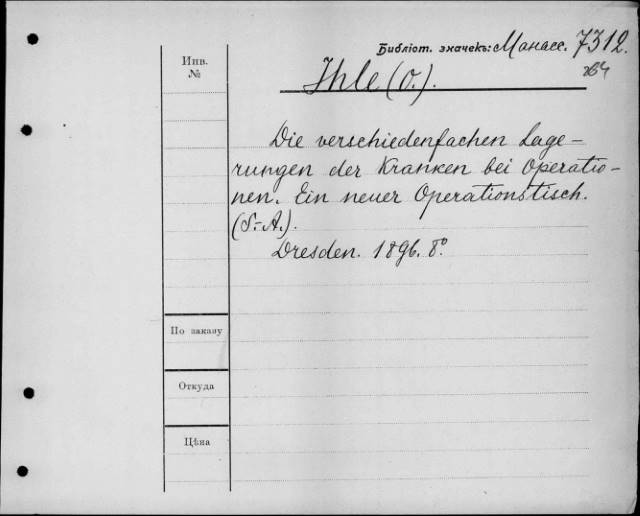 Библіот. значекъ: Манасс. 7312.
Инв.
№
Ihle (O.).
Die verschiedenfachen Lage-
rungen der Kranken bei Operatio-
nen. Ein neuer Operationstisch.
(S.-A.).
Dresden. 1896. 8º
По заказу
Откуда
Цѣна